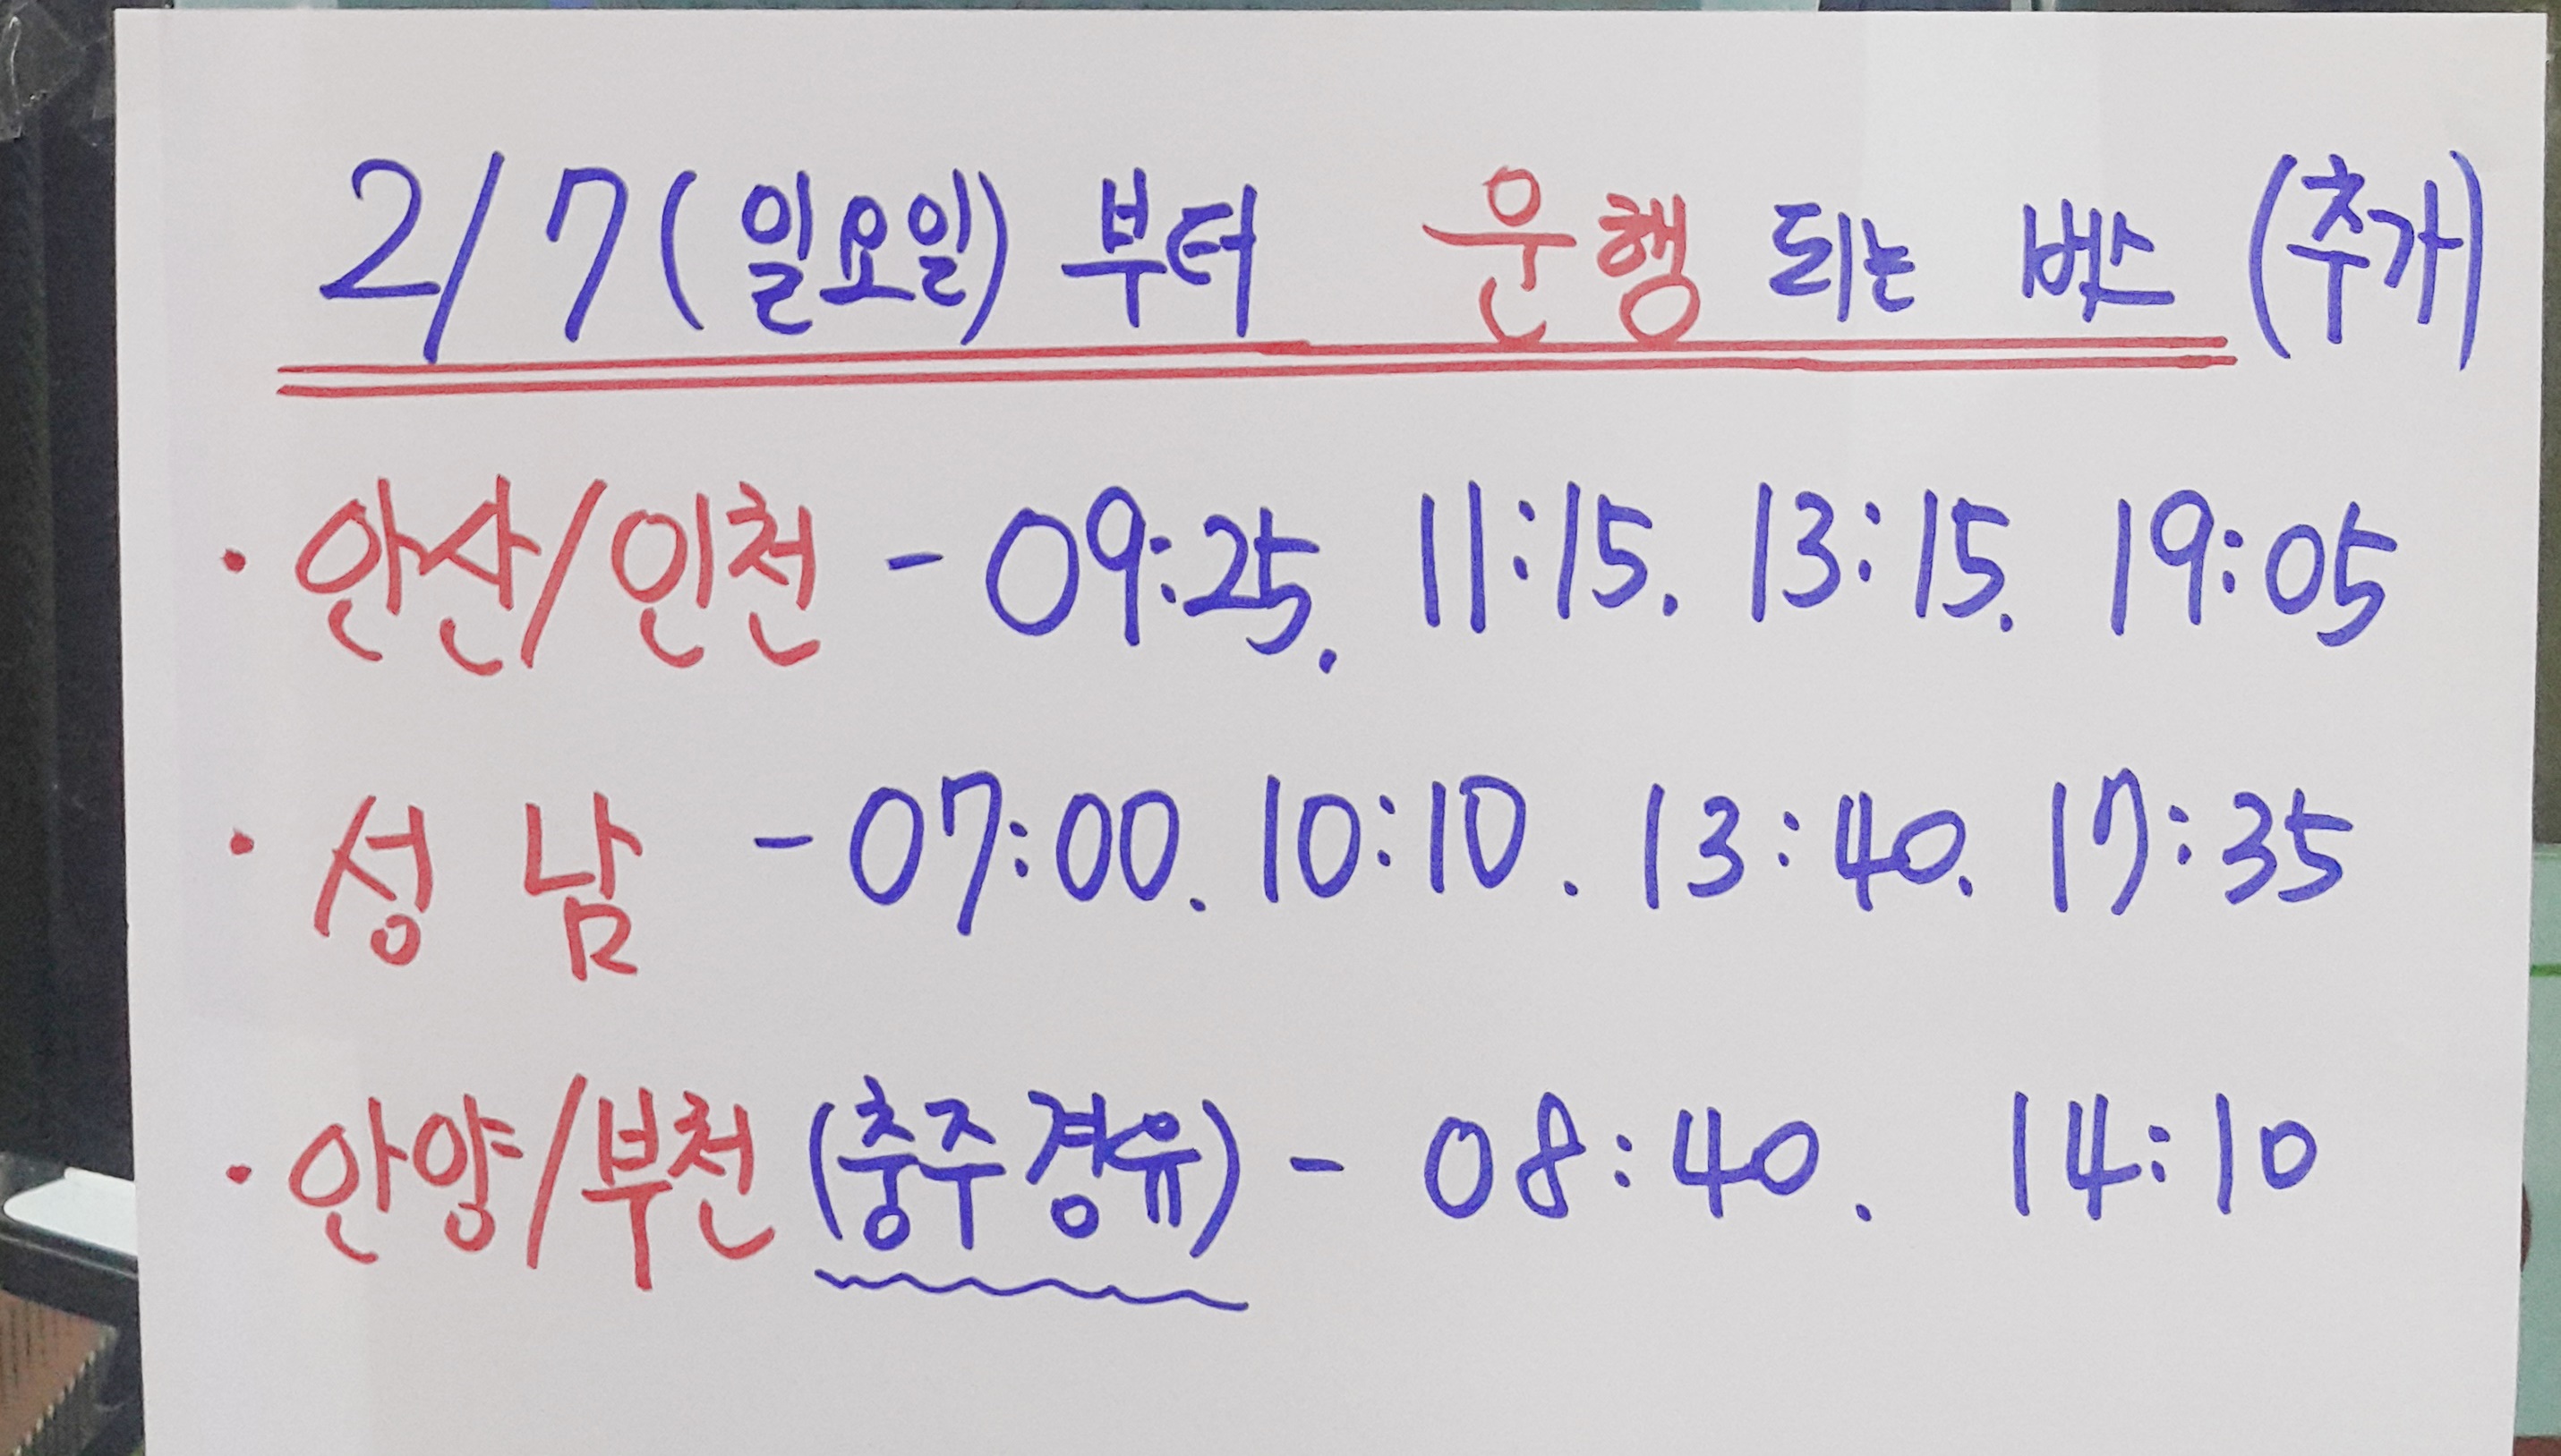 2/7(일요일) 부터 운행 되는 버스 (추가)
· 안산/인천 - 09:25. 11:15. 13:15. 19:05
· 성 남 - 07:00. 10:10. 13:40. 17:35
· 안양/부천 (충주경유) - 08:40. 14:10